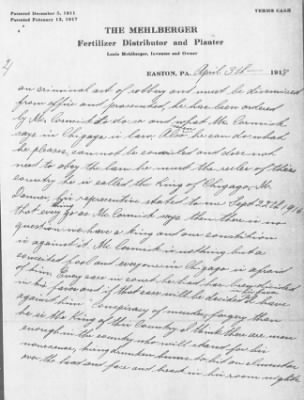 Patented December 5, 1911
Patented February 13, 1917
TERMS CASH
THE MEHLBERGER
Fertilizer Distributor and Planter
Louis Mehlberger, Inventor and Owner
2/
EASTON, PA. April 3th 1918
on criminal act of robbing and must be dismissed
from office and prosecuted, he has been ordered
by Mc. Cormick to do so and what Mc. Cormick
says in Chigago is law. him he can do what
he pleases, cannot be convicted and does not
need to obey the law he must the ruler of this
country he is called the King of Chigago, Mr.
Danner, his representive stated to me Sept 22th 1914
that every thing goes Mc. Cormick says then there is no
question we have a king and our constitution
is against it Mc. Cormick is nothing but a
conceited fool and everyone in Chigago is afraid
of him. Every case in court he has had been decided
in his favor and if that case will be decided I have
against him conspiracy of murder, forgery then
he is the King of this Country I think there are men
enough in the country who will stand for his
nonsense, hiring drunken bums to hit an Inventor
over the head and face and break in his room nights